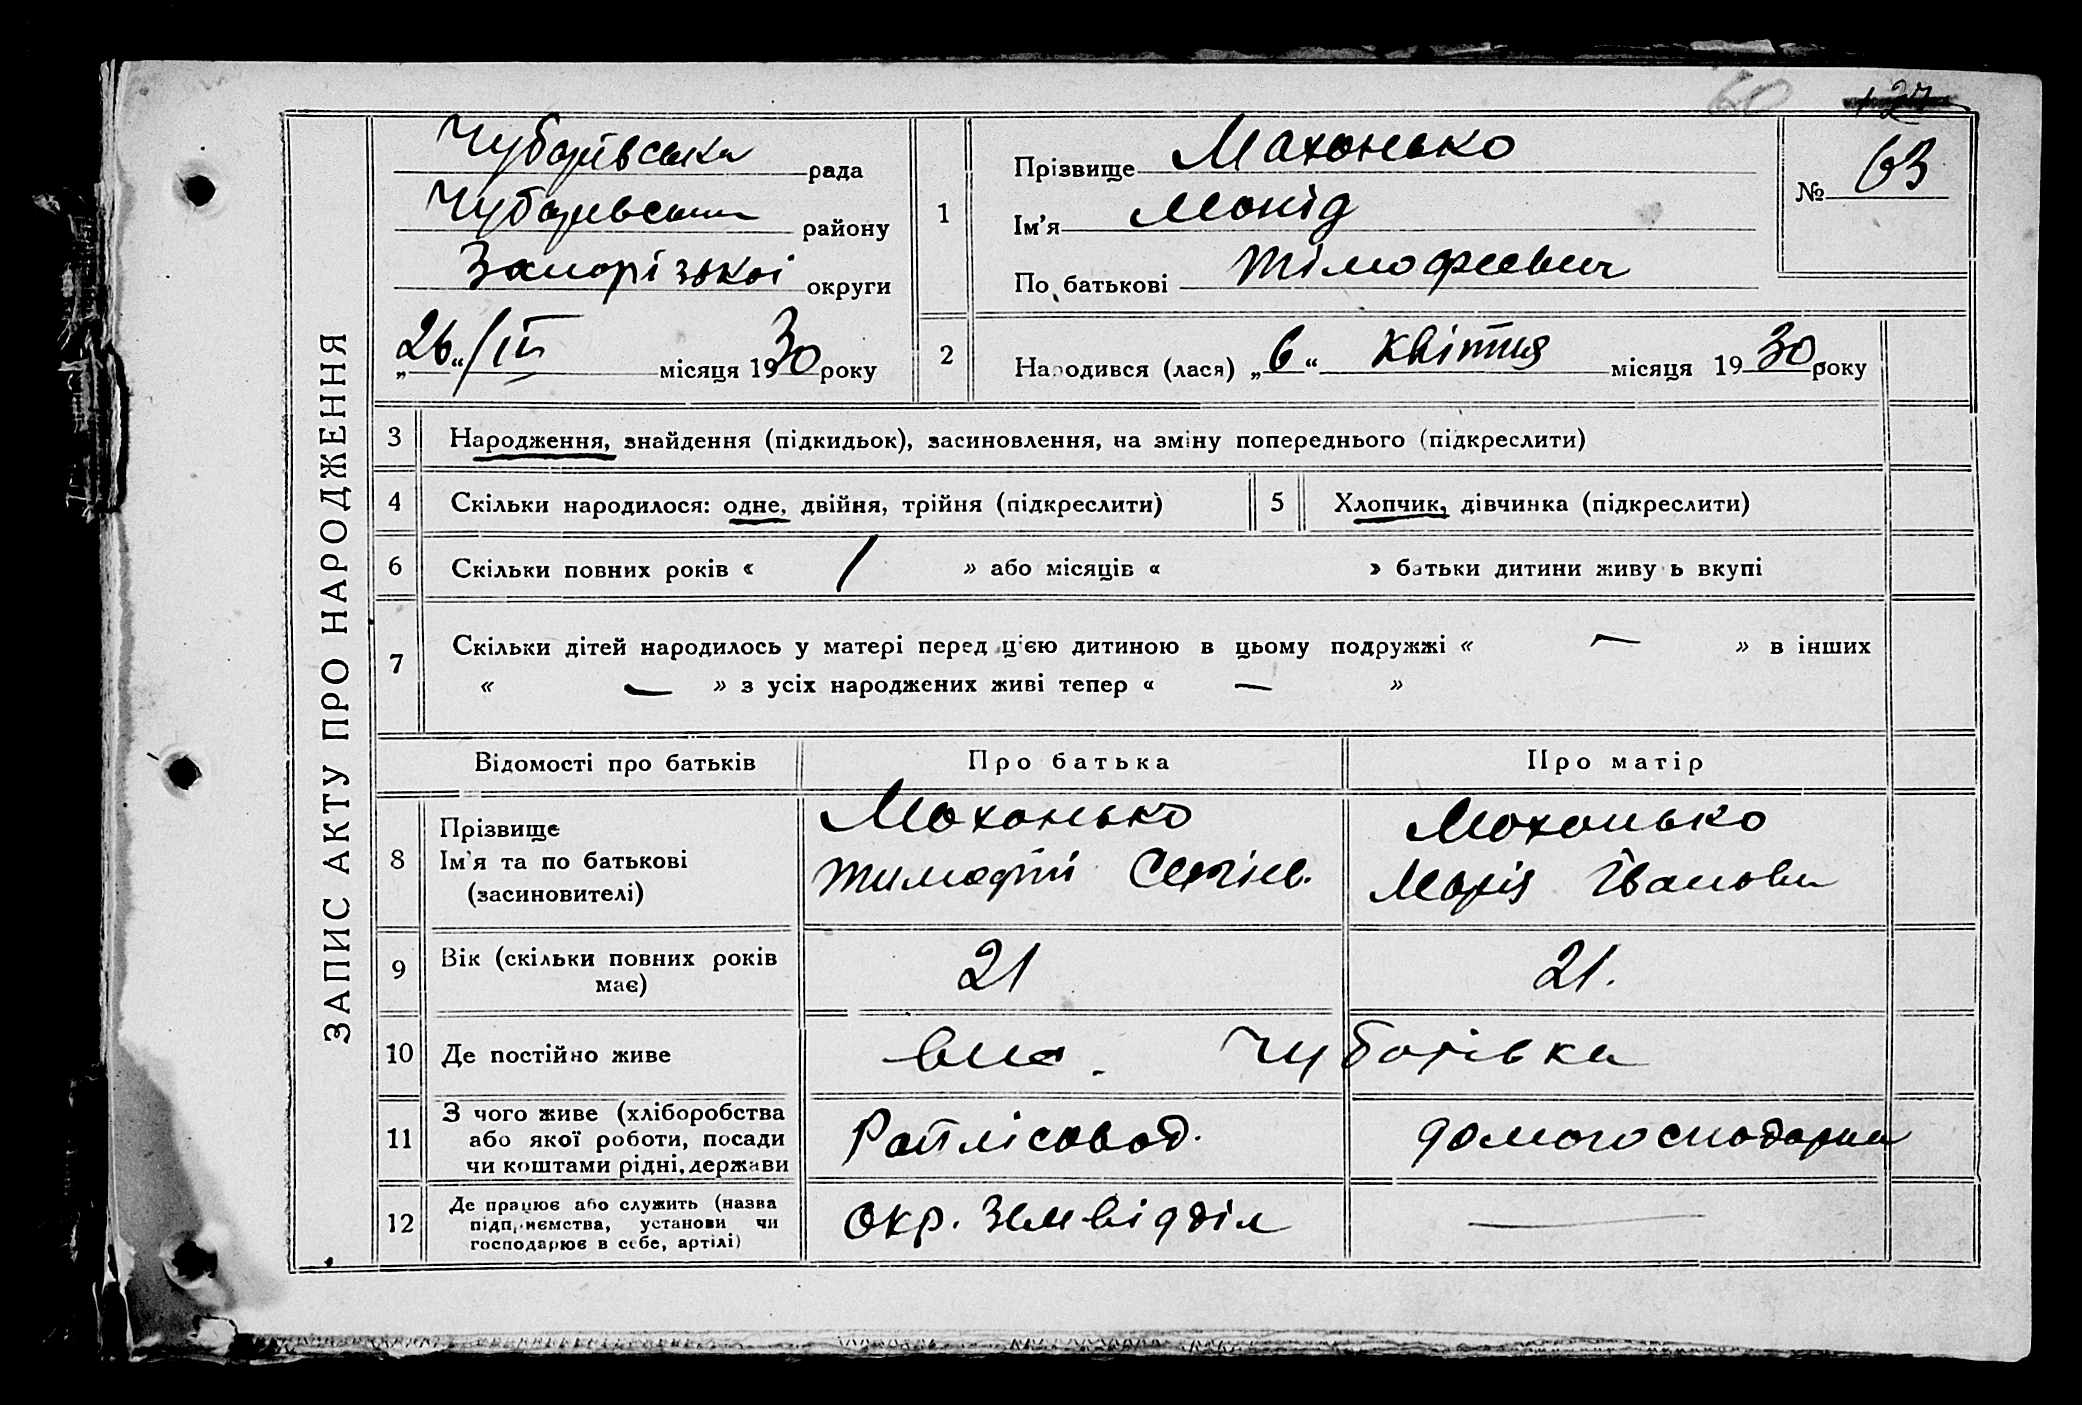 60
27
ЗАПИС АКТУ ПРО НАРОДЖЕННЯ
Чубарівська рада
Чубарівськ району
Запорізької округи
„26“/III місяця 1930 року
1
Прізвище Махонько
Ім'я Монід
По батькові Тімофеевич
№ 63
2
Народився (лася) „6“ квітня місяця 1930 року
3 Народження, знайдення (підкидьок), засиновлення, на зміну попереднього (підкреслити)
4 Скільки народилося: одне, двійня, трійня (підкреслити)
5 Хлопчик, дівчинка (підкреслити)
6 Скільки повних років « / » або місяців « » батьки дитини живуть вкупі
7 Скільки дітей народилось у матері перед цією дитиною в цьому подружжі « — » в інших
« — » з усіх народжених живі тепер « — »
Відомості про батьків Про батька Про матір
8 Прізвище
Ім'я та по батькові
(засиновителі)
Махонько
Тимофій Сергіев.
Махонько
Марія Івановн
9 Вік (скільки повних років
має)
21 21.
10 Де постійно живе Чубарівка
11 З чого живе (хліборобства
або якої роботи, посади
чи коштами рідні, держави
Райлісовод. домогосподарка
12 Де працює або служить (назва
підприємства, установи чи
господарює в себе, артілі)
Окр. Земвідділ —